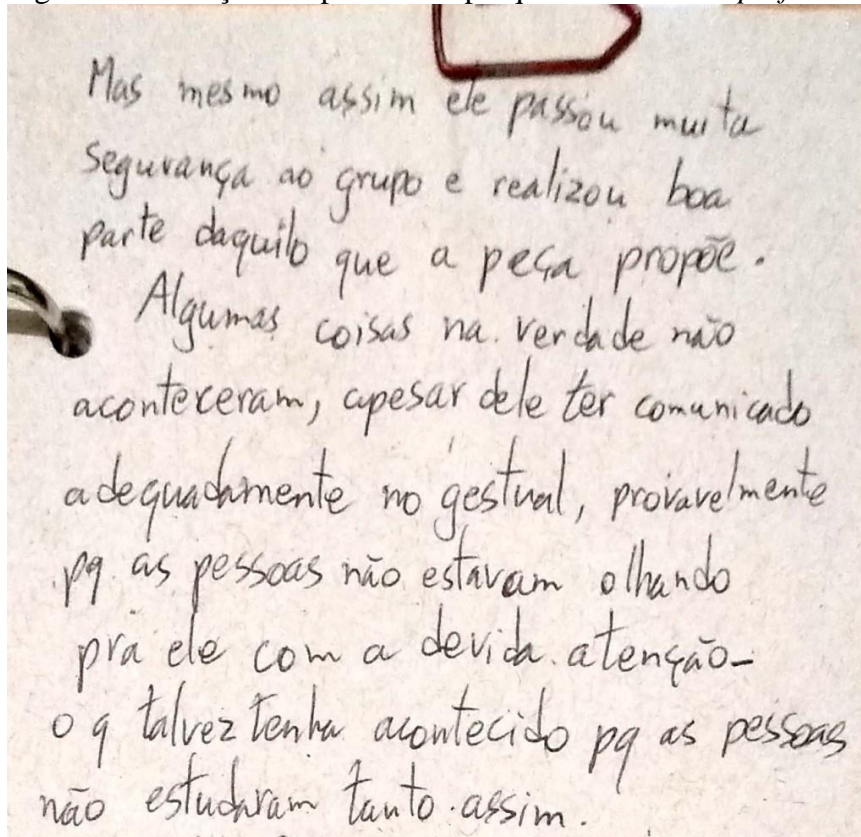 Mas mesmo assim ele passou muita
segurança ao grupo e realizou boa
parte daquilo que a peça propõe.
Algumas coisas na verdade não
aconteceram, apesar dele ter comunicado
adequadamente no gestual, provavelmente
pq as pessoas não estavam olhando
pra ele com a devida atenção-
o q talvez tenha acontecido pq as pessoas
não estudaram tanto assim.